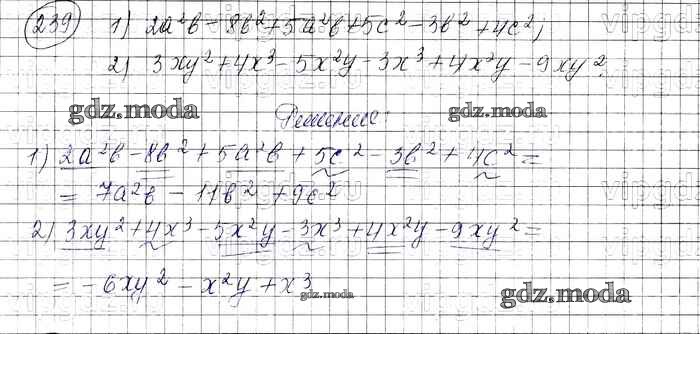 239 1) 2a²b - 8b² + 5a²b + 5c² - 3b² + 4c²;
2) 3xy² + 4x³ - 5x²y - 3x³ + 4x²y - 9xy².
gdz.moda gdz.moda
Решение:
1) 2a²b - 8b² + 5a²b + 5c² - 3b² + 4c² =
= 7a²b - 11b² + 9c²
2) 3xy² + 4x³ - 5x²y - 3x³ + 4x²y - 9xy² =
= -6xy² - x²y + x³
gdz.moda gdz.moda